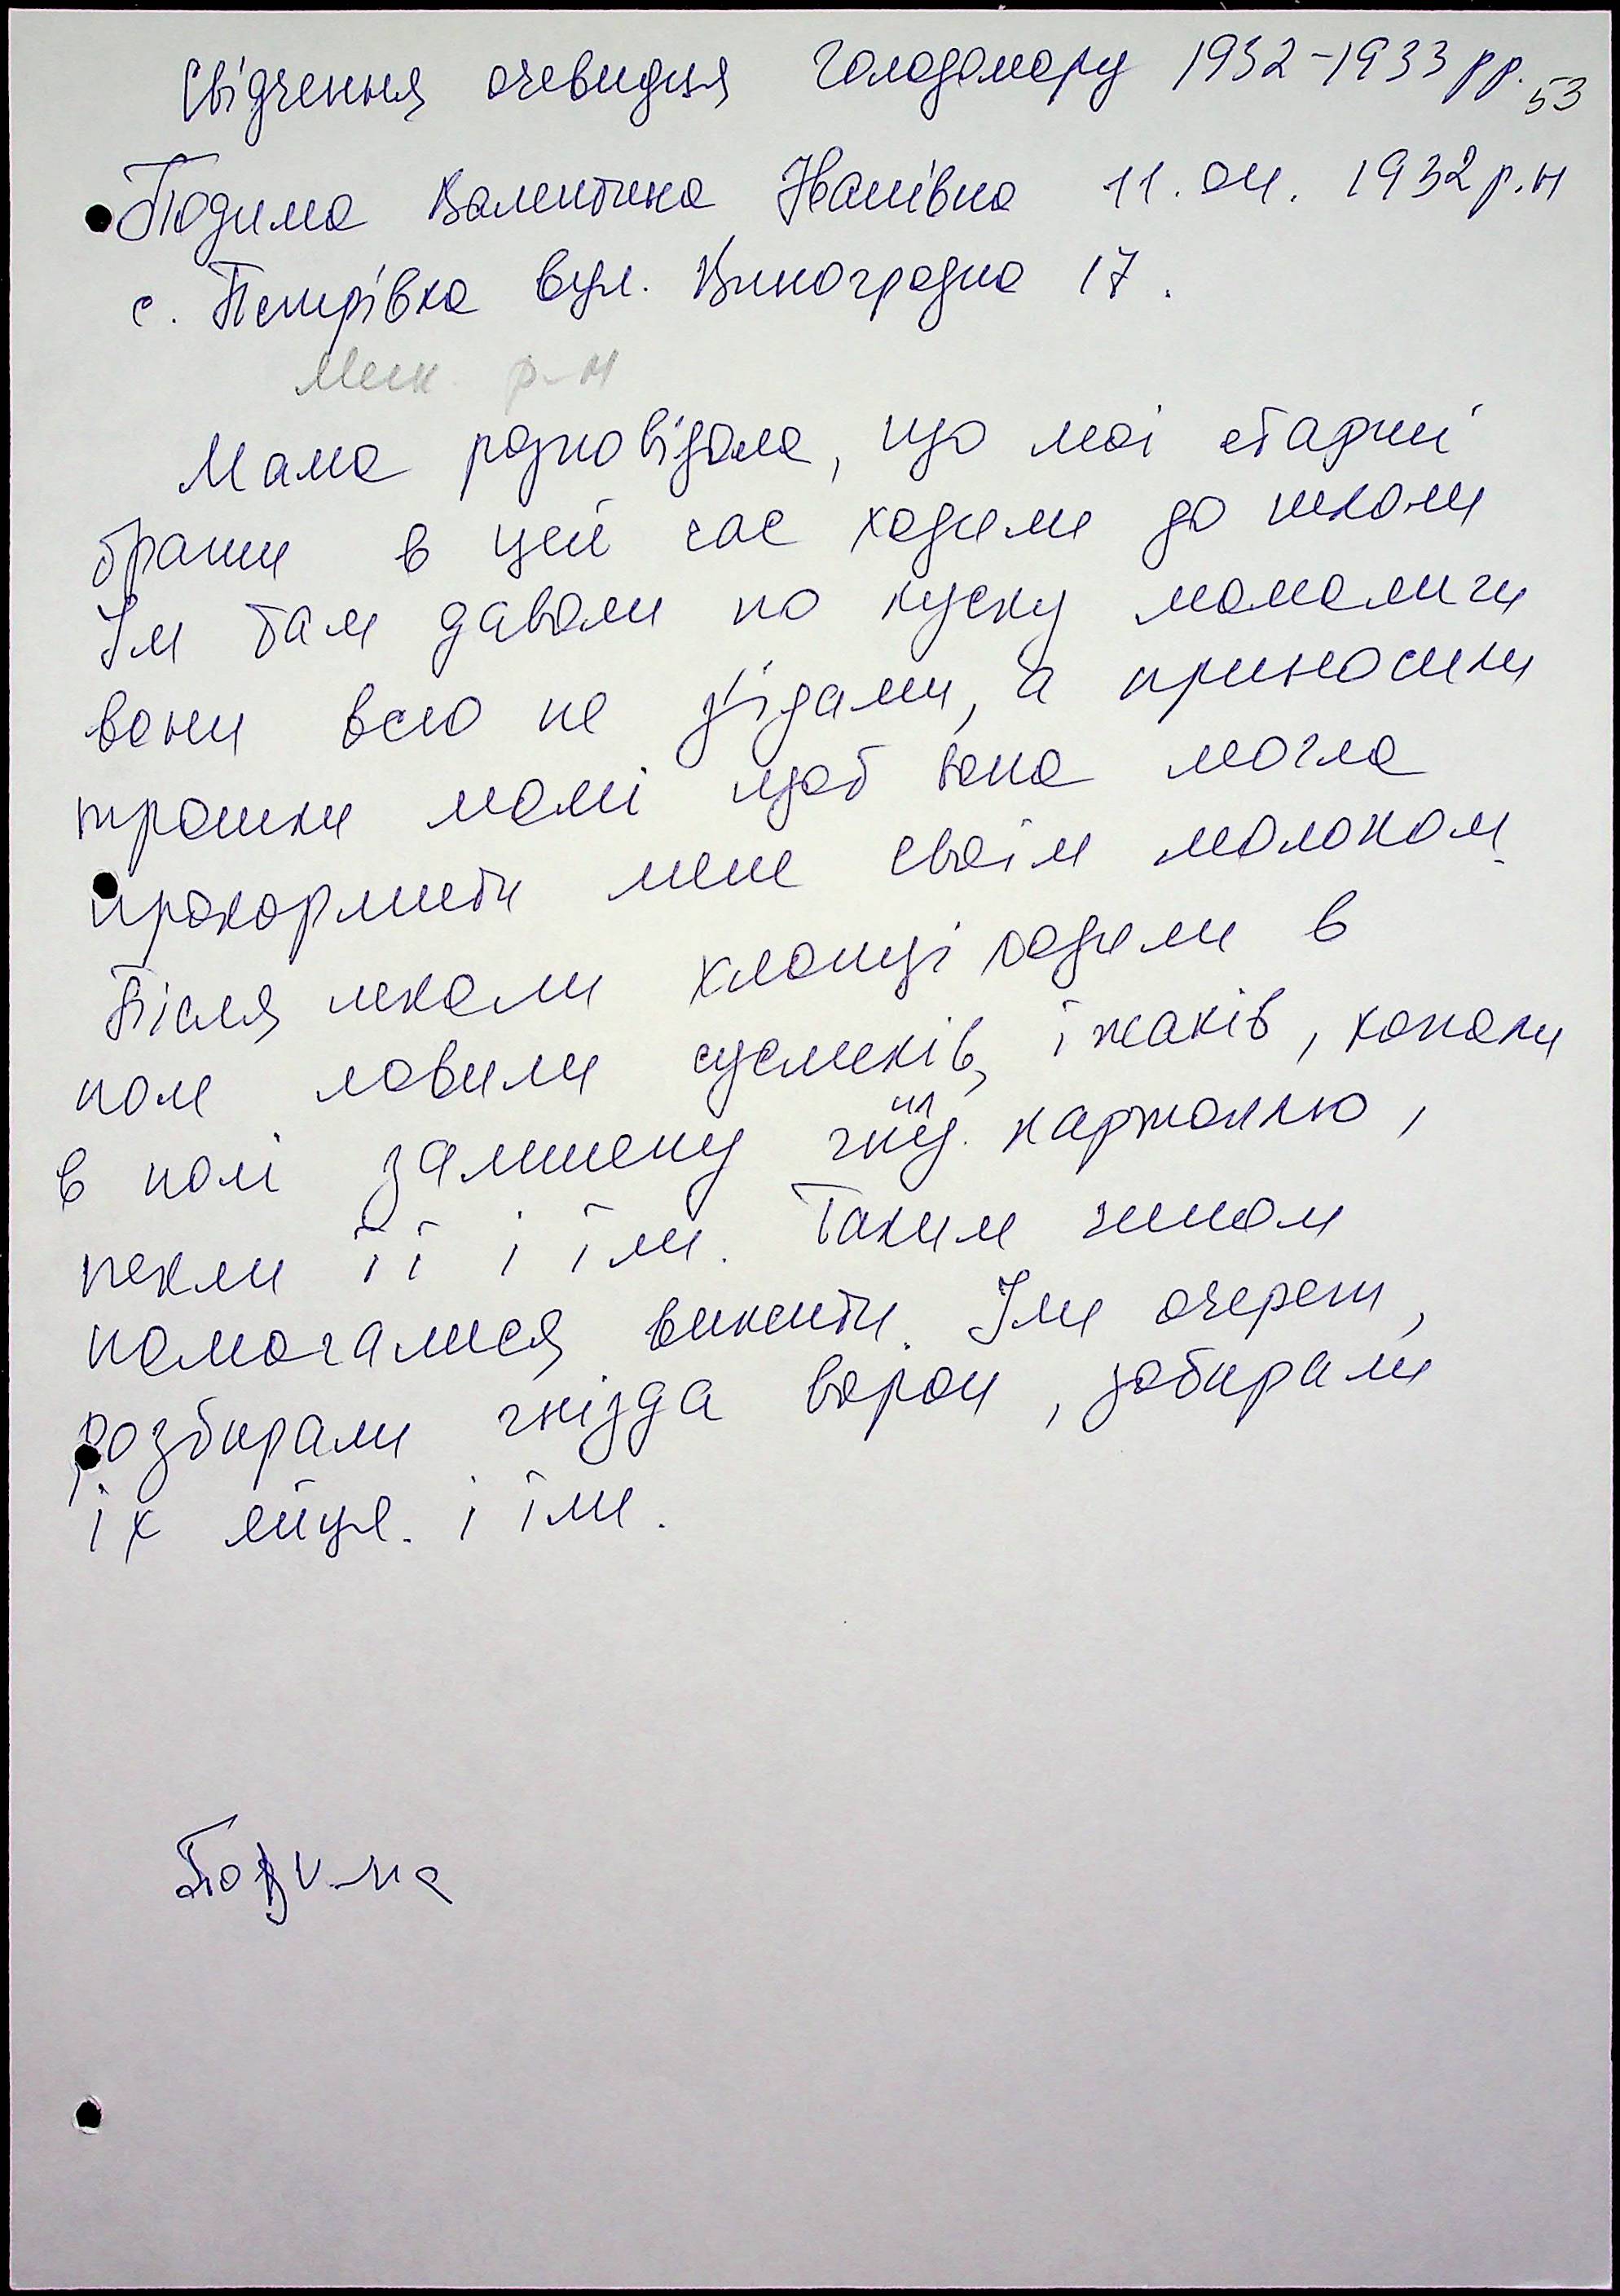 Свідчення очевидця Голодомору 1932-1933 рр. 53
Подима Валентина Іванівна 11. 04. 1932 р.н
с. Петрівка вул. Виноградна 17.
р-н
Мама розповідала, що мої старші
брати в цей час ходили до школи
Їм там давали по куску мамалиги
вони всю не з'їдали, а приносили
трошки мамі щоб вона могла
прокормити мене своїм молоком.
Після школи хлопці ходили в
поле ловили сусликів, їжаків, копали
в полі залишену гнилу картоплю,
пекли її і їли. Таким чином
помогалися вижити. Їли очерет,
розбирали гнізда ворон, забирали
їх яйця. і їли.
Подима